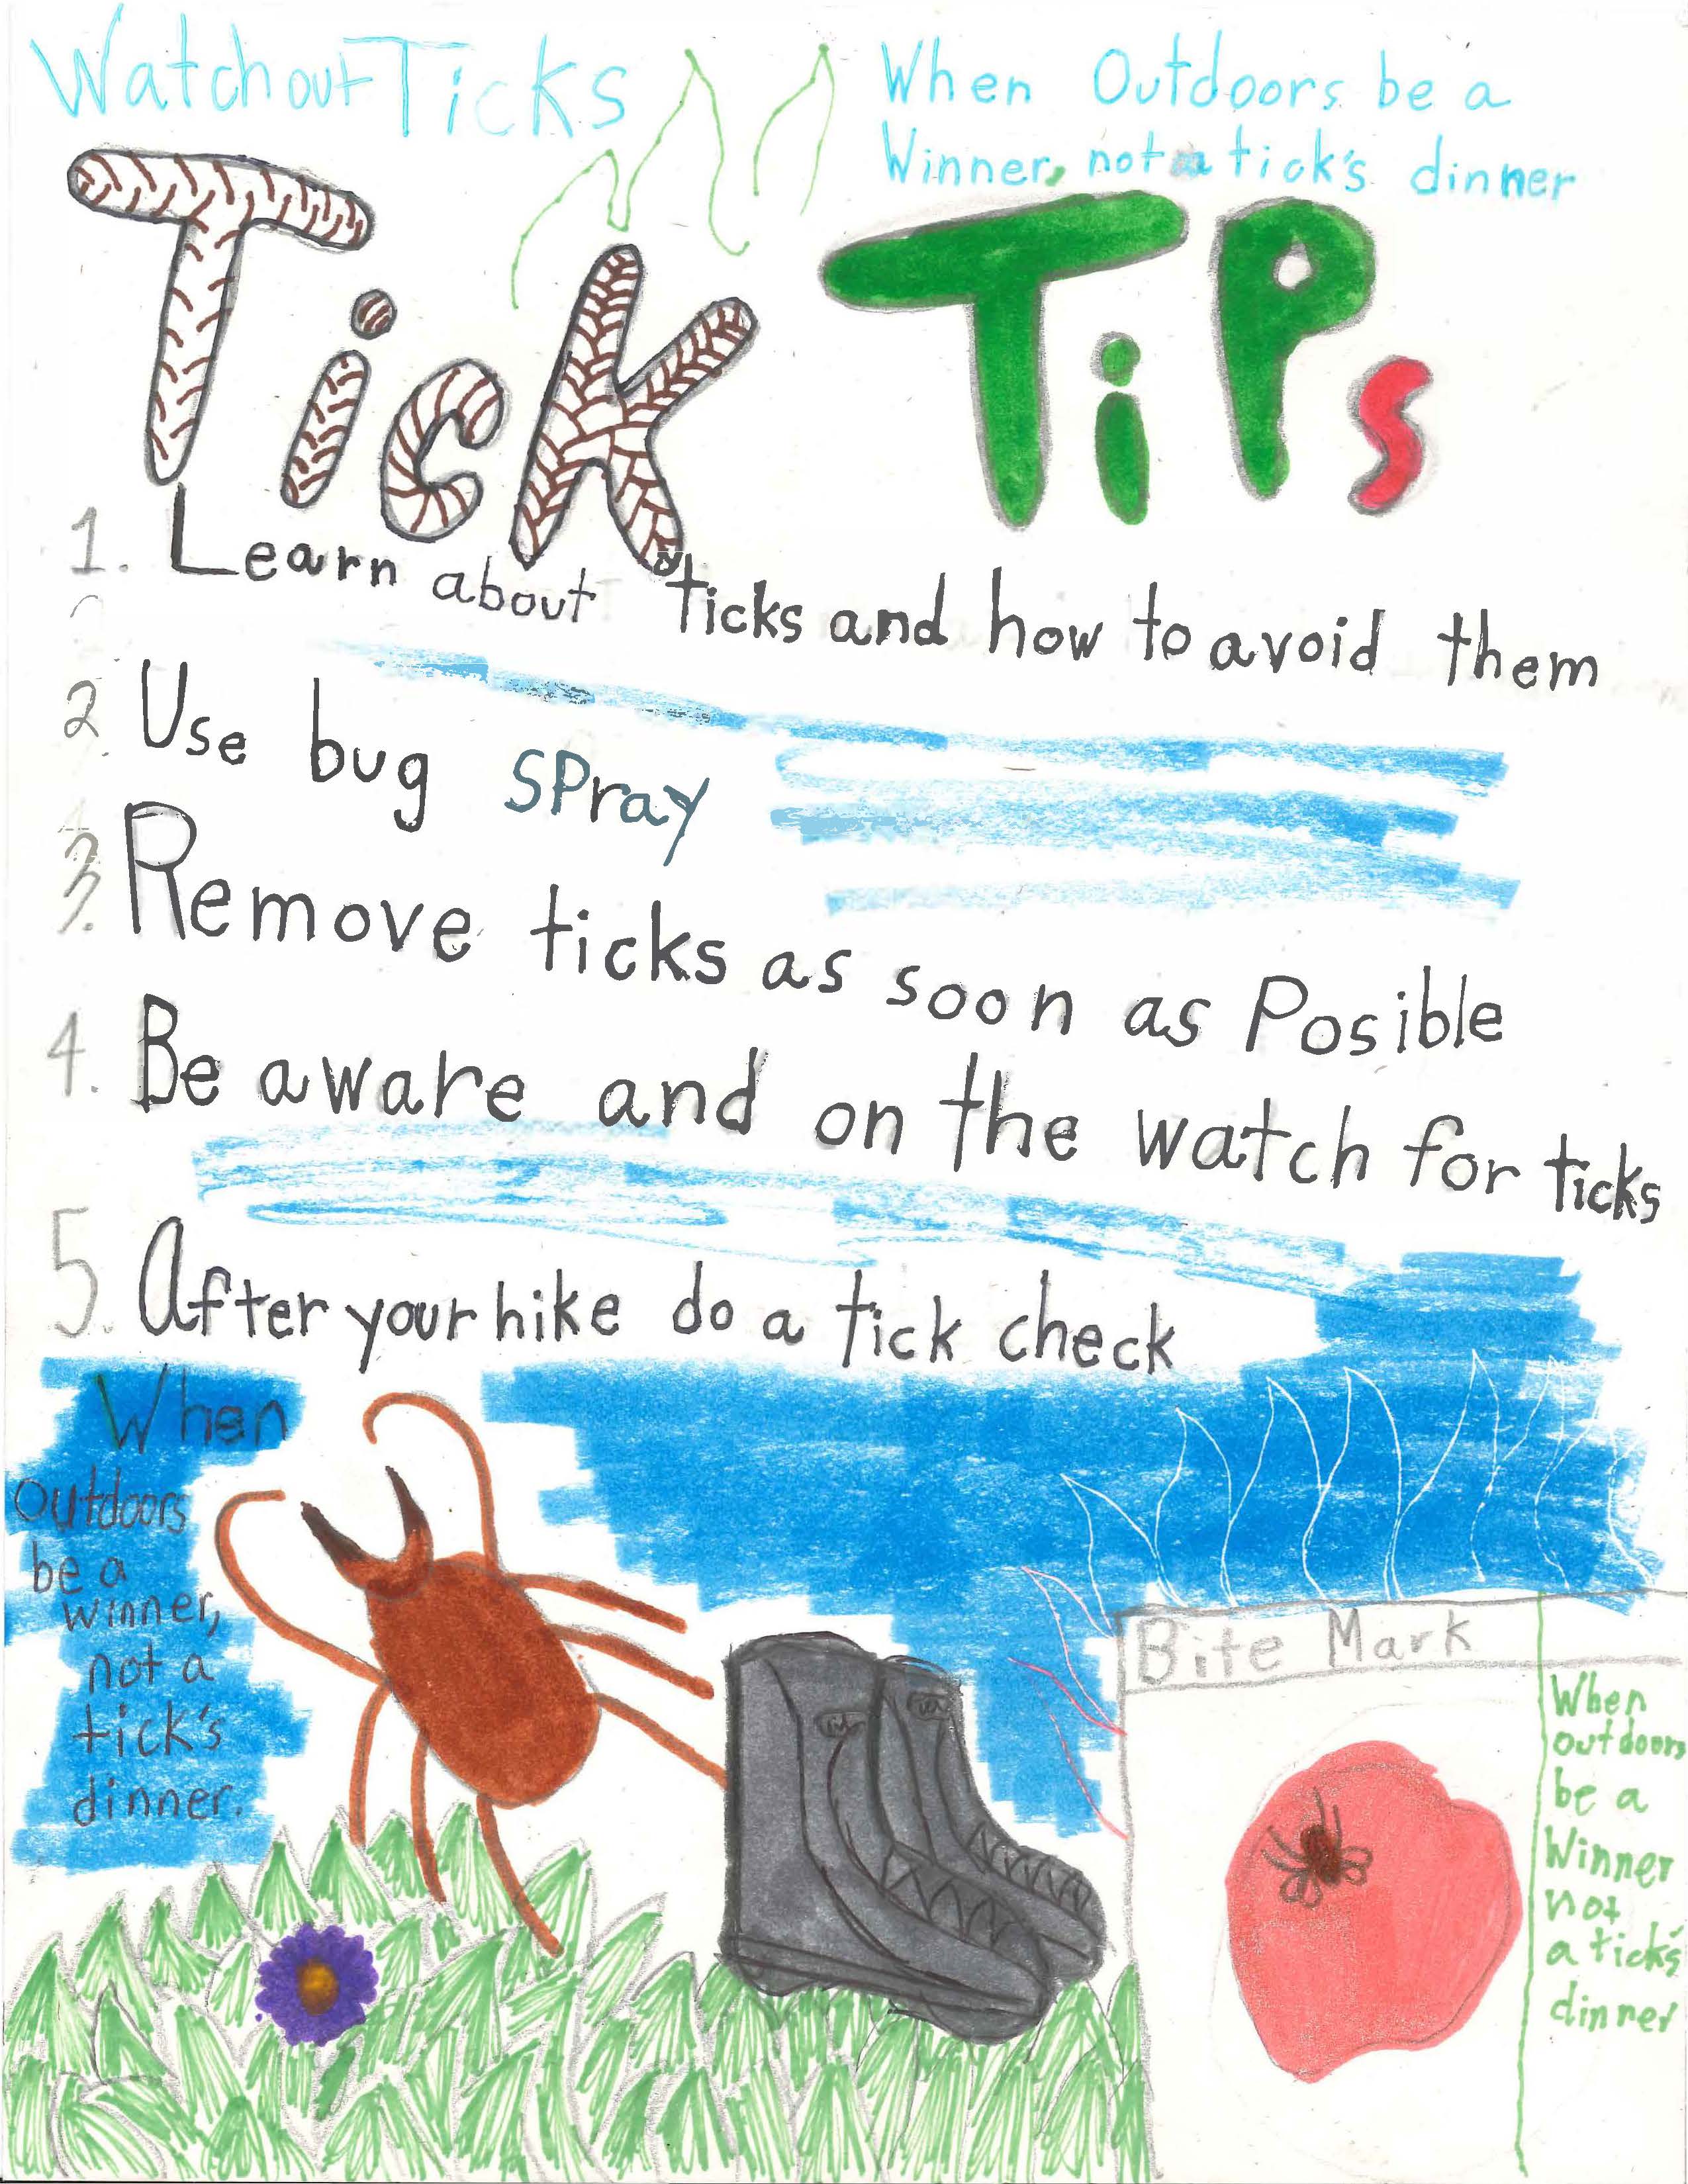 Watch out Ticks
When Outdoors be a
Winner, not a tick's dinner
Tick TiPs
1. Learn about ticks and how to avoid them
2 Use bug SPray
3. Remove ticks as soon as Posible
4. Be aware and on the watch for ticks
5. After your hike do a tick check
When
outdoors
be a
winner,
not a
tick's
dinner.
Bite Mark
When
outdoors
be a
Winner
not
a tick's
dinner